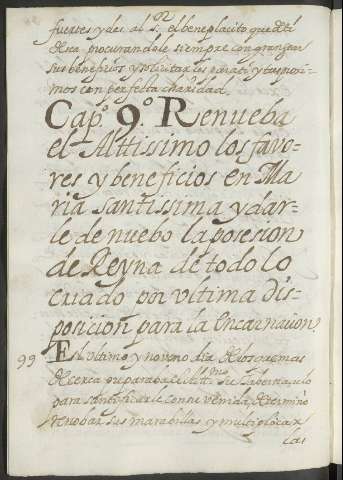 fuerzes y des al S.or el beneplacito que de ti
desea procurandole siempre con grangear
sus beneficios y solicitarlos para ti y tus proxi-
mos con perfecta charidad.
Cap.o 9.o Renueba
el Alttissimo los favo-
res y beneficios en Ma
ria santissima y dar-
le de nuebo la posesion
de Reyna de todo lo
criado por ultima dis-
posicion para la encarnacion.
99 El ultimo y noveno dia de los que mas
de cerca preparaba el Altt.mo su tabernaculo
para santificarle con su venida, determino
renobar sus marabillas y multiplicar
las